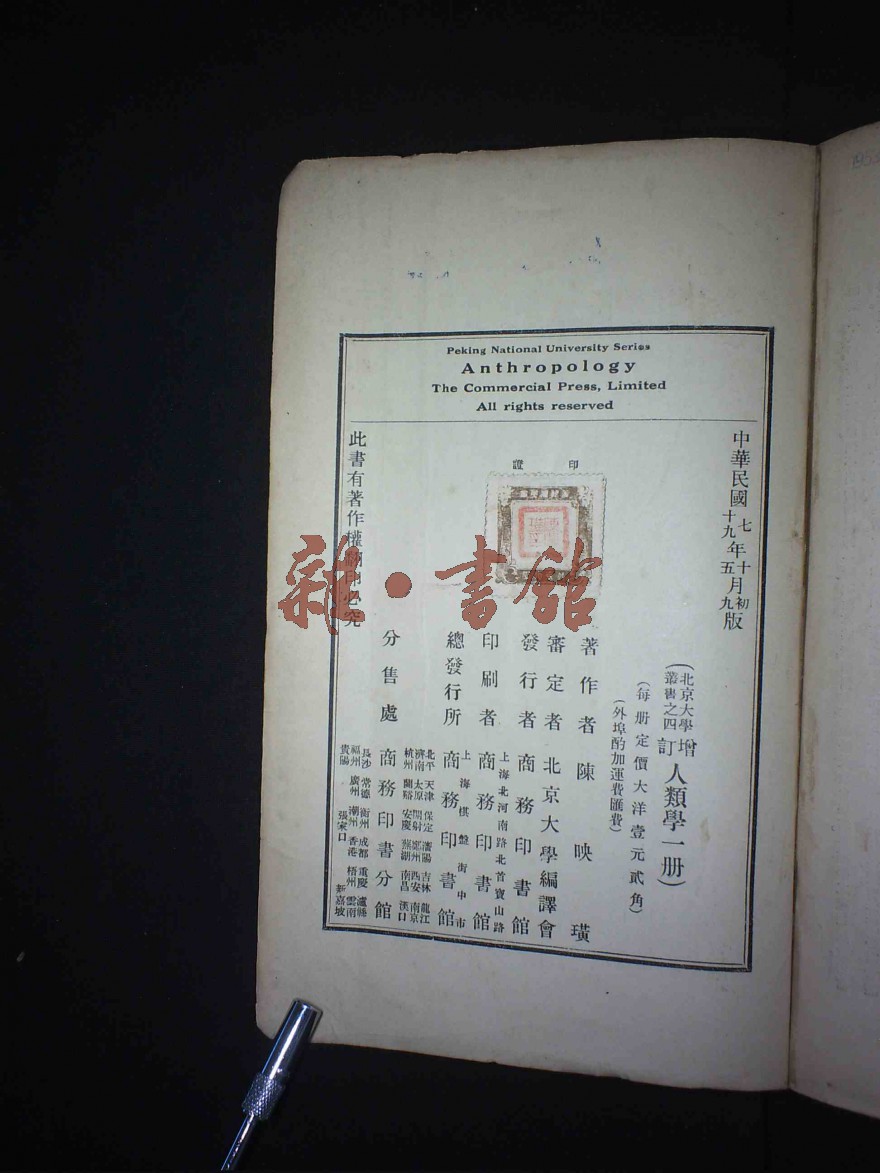 Peking National University Series
Anthropology
The Commercial Press, Limited
All rights reserved
中華民國
七年十月初版
十九年五月九版
印證
(北京大學叢書之四 增訂人類學一册)
(每册定價大洋壹元貳角)
(外埠酌加運費匯費)
著作者 陳映璜
審定者 北京大學編譯會
發行者 商務印書館
上海北河南路北首寶山路
印刷者 商務印書館
上海棋盤街中市
總發行所 商務印書館
北平 天津 保定 瀋陽 吉林 龍江
濟南 太原 開封 鄭州 西安 南京
杭州 蘭谿 安慶 蕪湖 南昌 漢口
分售處 商務印書分館
長沙 常德 衡州 成都 重慶 瀘縣
福州 廣州 潮州 香港 梧州 雲南
貴陽 張家口 新嘉坡
此書有著作權翻印必究
雜·書館